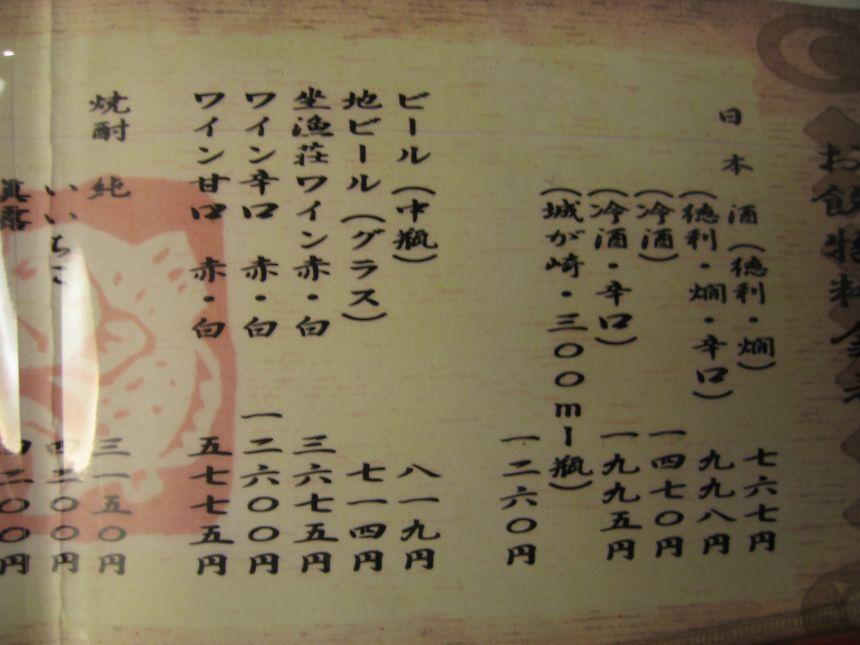 お飲物料金表
日本酒(徳利・燗) 七六七円
(徳利・燗・辛口) 九九八円
(冷酒) 一四七〇円
(冷酒・辛口) 一九九五円
(城が崎・三〇〇ml瓶) 一二六〇円
ビール(中瓶) 八一九円
地ビール(グラス) 七一四円
坐漁荘ワイン赤・白 三六七五円
ワイン辛口 赤・白 一二六〇〇円
ワイン甘口 赤・白 五七七五円
焼酎 純 三一五〇円
いいちこ 四二〇〇円
真露 四二〇〇円